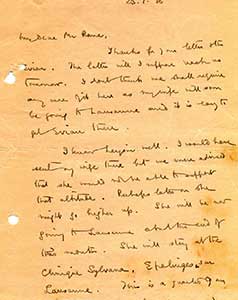 25.1.36
My dear Mr Rama,
Thanks for your letter
The letter will I suppose reach us
tomorrow. I don't think we shall require
any more here as my wife will soon
be going to Lausanne and it is easy to
get there.
I know Leysin well. I would have
sent my wife there but we were advised
that she would not be able to support
that altitude. Perhaps later on she
might go higher up. She will be now
going to Lausanne about the end of
this month. She will stay at the
Clinique Sylvana, Epalinges, sur
Lausanne. This is a quarter of an